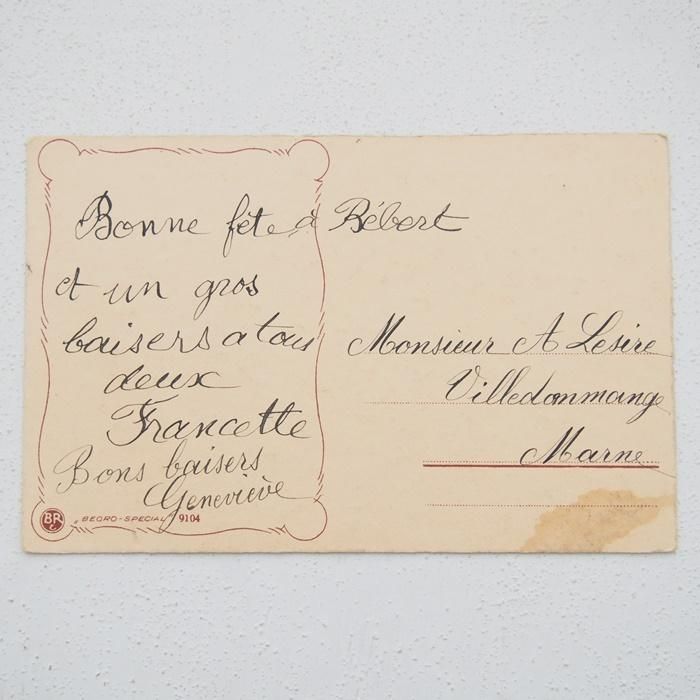 Bonne fête à Bébert
et un gros
baisers a tous
deux
Francette
Bons baisers
Geneviève
Monsieur A Lesire
Villedommange
Marne
BR
C
"BEGRO-SPECIAL" 9104